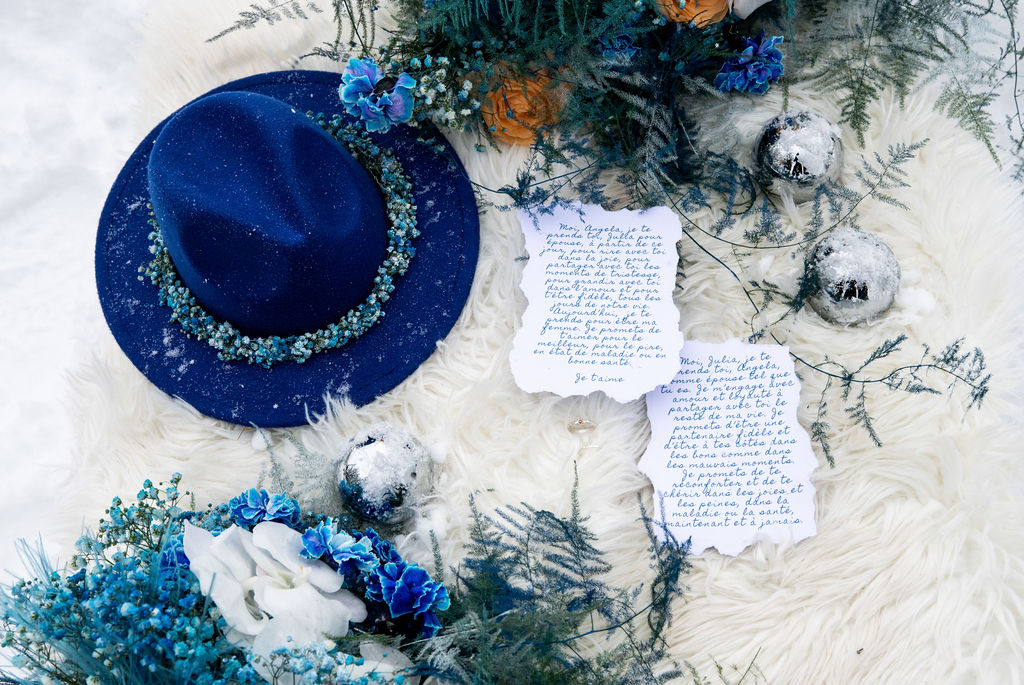 Moi, Angela, je te
prends toi, Julia pour
épouse, à partir de ce
jour, pour rire avec toi
dans la joie, pour
partager avec toi les
moments de tristesse,
pour grandir avec toi
dans l'amour et pour
t'être fidèle, tous les
jours de notre vie.
Aujourd'hui, je te
prends pour être ma
femme. Je promets de
t'aimer pour le
meilleur, pour le pire,
en état de maladie ou en
bonne santé.
Je t'aime
Moi, Julia, je te
prends toi, Angela,
comme épouse tel que
tu es. Je m'engage avec
amour et loyauté à
partager avec toi le
reste de ma vie. Je
promets d'être une
partenaire fidèle et
d'être à tes côtés dans
les bons comme dans
les mauvais moments.
Je promets de te
réconforter et de te
chérir dans les joies et
les peines, dans la
maladie ou la santé,
maintenant et à jamais.